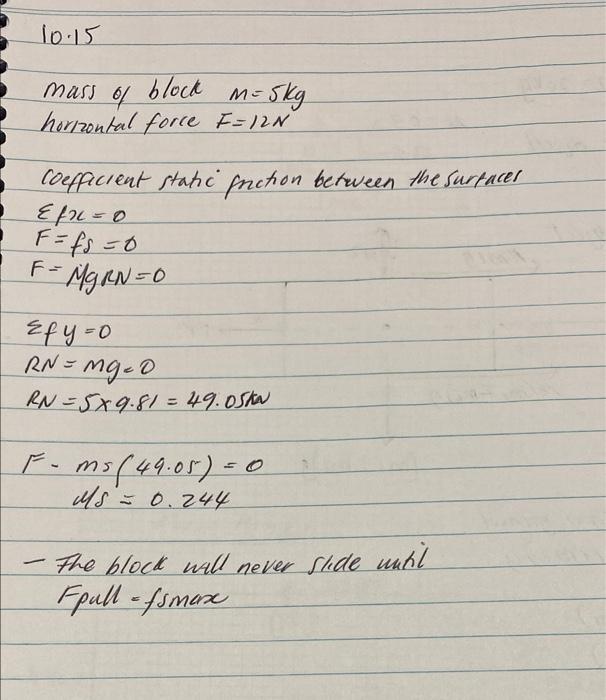 10.15
mass of block M=5kg
horrzontal force F=12N
Coefficient static friction between the surfaces
Σfx=0
F=fs=0
F=MgRN=0
Σfy=0
RN=mg=0
RN=5x9.81=49.05kN
F-ms(49.05)=0
Ms=0.244
- The block will never slide until
Fpull=fsmax